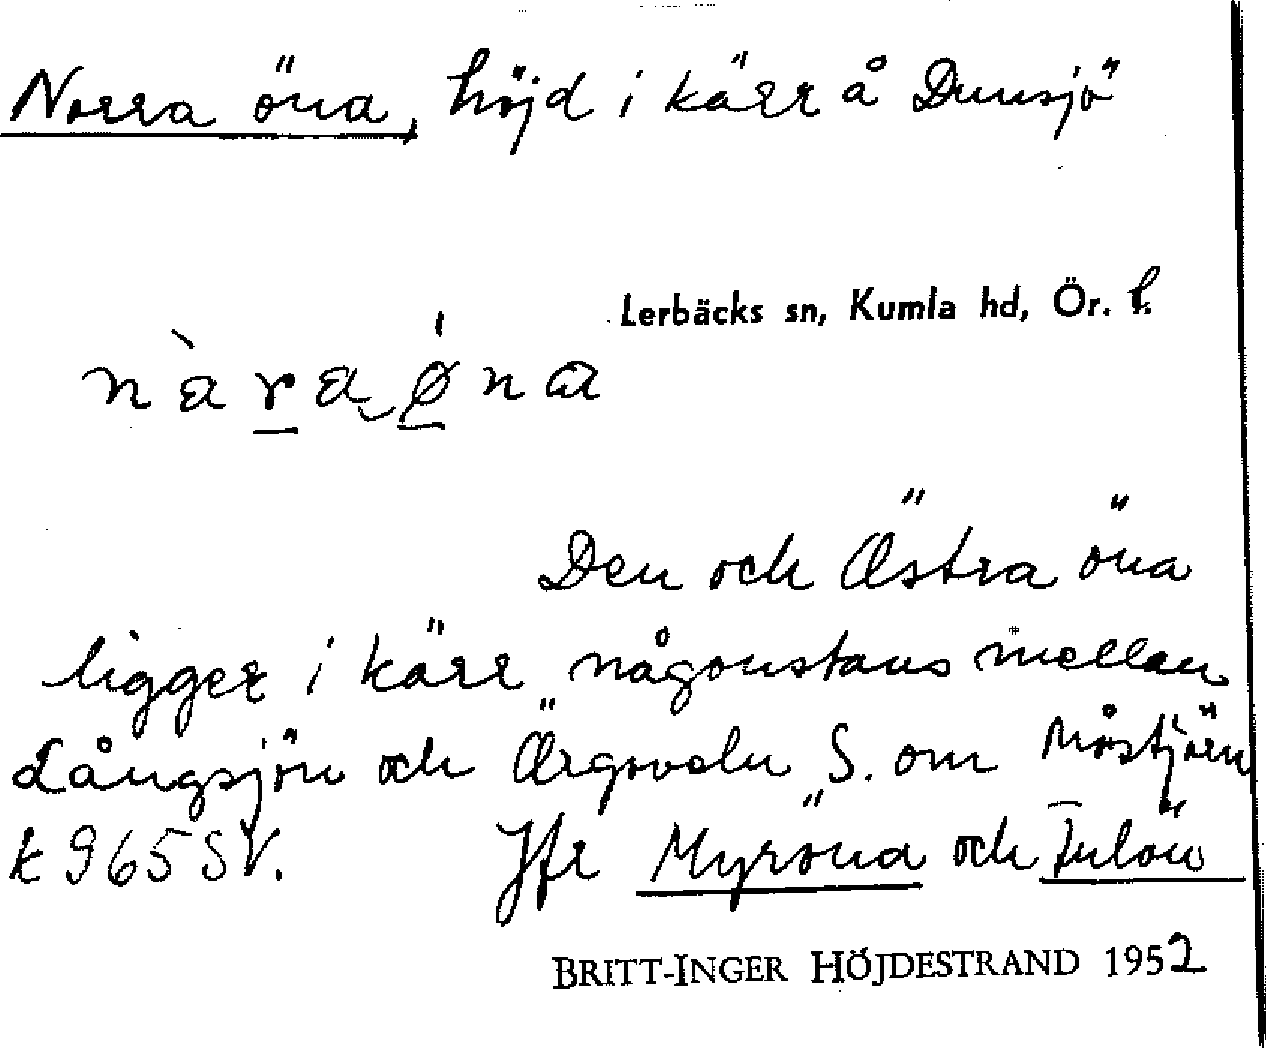 Norra öna, höjd i kärr å Dunsjö
Lerbäcks sn, Kumla hd, Ör. l.
nàra ǿna
Den och Östra öna
ligger i kärr någonstans mellan
Långsjön och Örgsveln S. om Måstjärn
k 965 SV. Jfr Myröna och Fulön
BRITT-INGER HÖJDESTRAND 1952